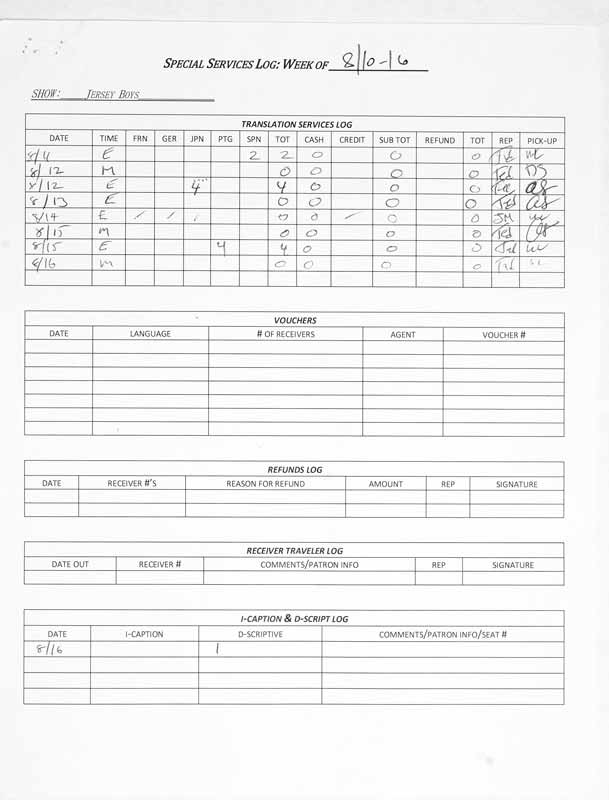 SPECIAL SERVICES LOG: WEEK OF 8/10-16
SHOW: JERSEY BOYS
TRANSLATION SERVICES LOG
DATE TIME FRN GER JPN PTG SPN TOT CASH CREDIT SUB TOT REFUND TOT REP PICK-UP
E 2 2 0 0 0 Ted
8/12 M 0 0 0 0 Ted DS
8/12 E 4 4 0 0 0
8/13 E 0 0 0 0 Ted
8/14 E / / / 0 0 / 0 0 JM
8/15 M 0 0 0 0 Ted
8/15 E 4 4 0 0 0 Ted
8/16 M 0 0 0 0 Ted
VOUCHERS
DATE LANGUAGE # OF RECEIVERS AGENT VOUCHER #
REFUNDS LOG
DATE RECEIVER #'S REASON FOR REFUND AMOUNT REP SIGNATURE
RECEIVER TRAVELER LOG
DATE OUT RECEIVER # COMMENTS/PATRON INFO REP SIGNATURE
I-CAPTION & D-SCRIPT LOG
DATE I-CAPTION D-SCRIPTIVE COMMENTS/PATRON INFO/SEAT #
8/16 1